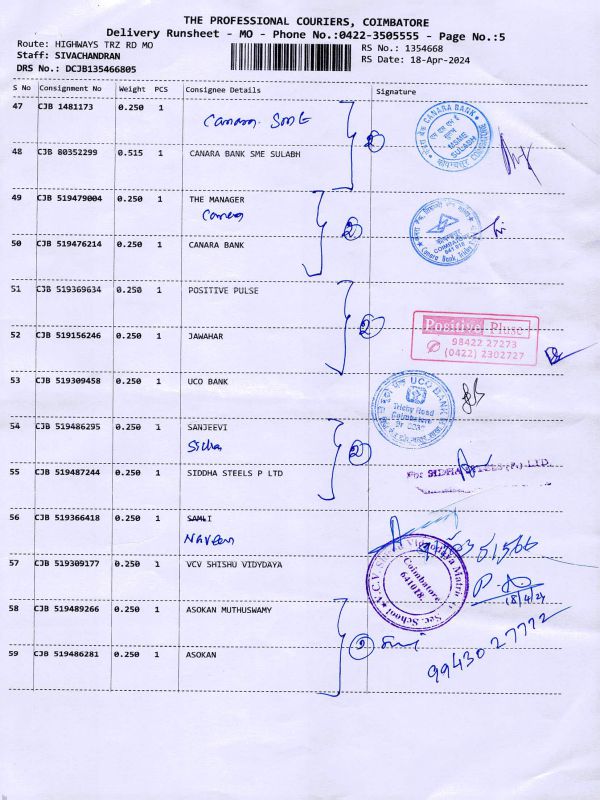 THE PROFESSIONAL COURIERS, COIMBATORE
Delivery Runsheet - MO - Phone No.:0422-3505555 - Page No.:5
Route: HIGHWAYS TRZ RD MO
RS No.: 1354668
Staff: SIVACHANDRAN
RS Date: 18-Apr-2024
DRS No.: DCJB135466805
S No Consignment No Weight PCS Consignee Details Signature
47 CJB 1481173 0.250 1
Canara SME
CANARA BANK
MSME SULABH
48 CJB 80352299 0.515 1 CANARA BANK SME SULABH
2
49 CJB 519479004 0.250 1 THE MANAGER
Canara
2
COIMBATORE
641 018
Canara Bank, Trichy
50 CJB 519476214 0.250 1 CANARA BANK
51 CJB 519369634 0.250 1 POSITIVE PULSE
2
Positive Pluse
98422 27273
(0422) 2302727
52 CJB 519156246 0.250 1 JAWAHAR
53 CJB 519309458 0.250 1 UCO BANK
UCO BANK
Trichy Road
Coimbatore
54 CJB 519486295 0.250 1 SANJEEVI
Sidha
2
55 CJB 519487244 0.250 1 SIDDHA STEELS P LTD
For SIDHA STEELS (P.) LTD.
56 CJB 519366418 0.250 1 SAMLI
Naveen
57 CJB 519309177 0.250 1 VCV SHISHU VIDYDAYA
V.C.V. Shishu Vidyodaya Matric Hr. Sec. School
Coimbatore
641018
18/4/24
58 CJB 519489266 0.250 1 ASOKAN MUTHUSWAMY
2
99430 27772
59 CJB 519486281 0.250 1 ASOKAN